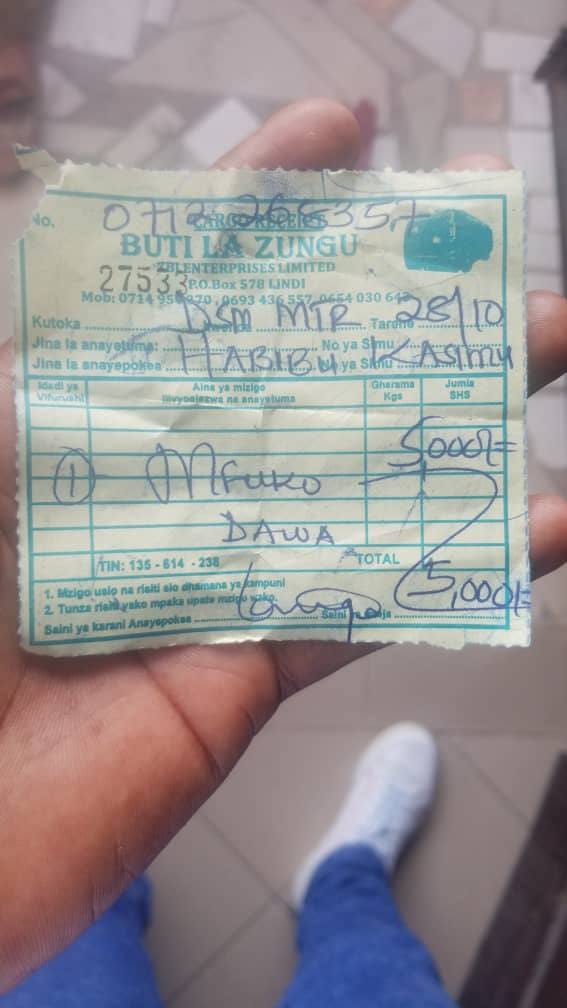 No. 0713 265357
CARGO RECEIPT
BUTI LA ZUNGU
ZBL ENTERPRISES LIMITED
27533 P.O.Box 578 LINDI
Mob: 0714 95 870 , 0693 436 557, 0654 030 64
Kutoka DSM MTR Tarehe 28/10
Jina la anayetuma: No ya Simu
Jina la anayepokea HABIBU ya Simu KASIMU
Idadi ya Vifurushi Aina ya mizigo ilivyoelezwa na anayetuma Gharama Kgs Jumla SHS
5000/=
1 MFUKO
DAWA
TIN: 135 - 614 - 238 TOTAL
5,000/=
1. Mzigo usio na risiti sio dhamana ya kampuni
2. Tunza risiti yako mpaka upate mzigo wako.
Saini ya karani Anayepokea Saini